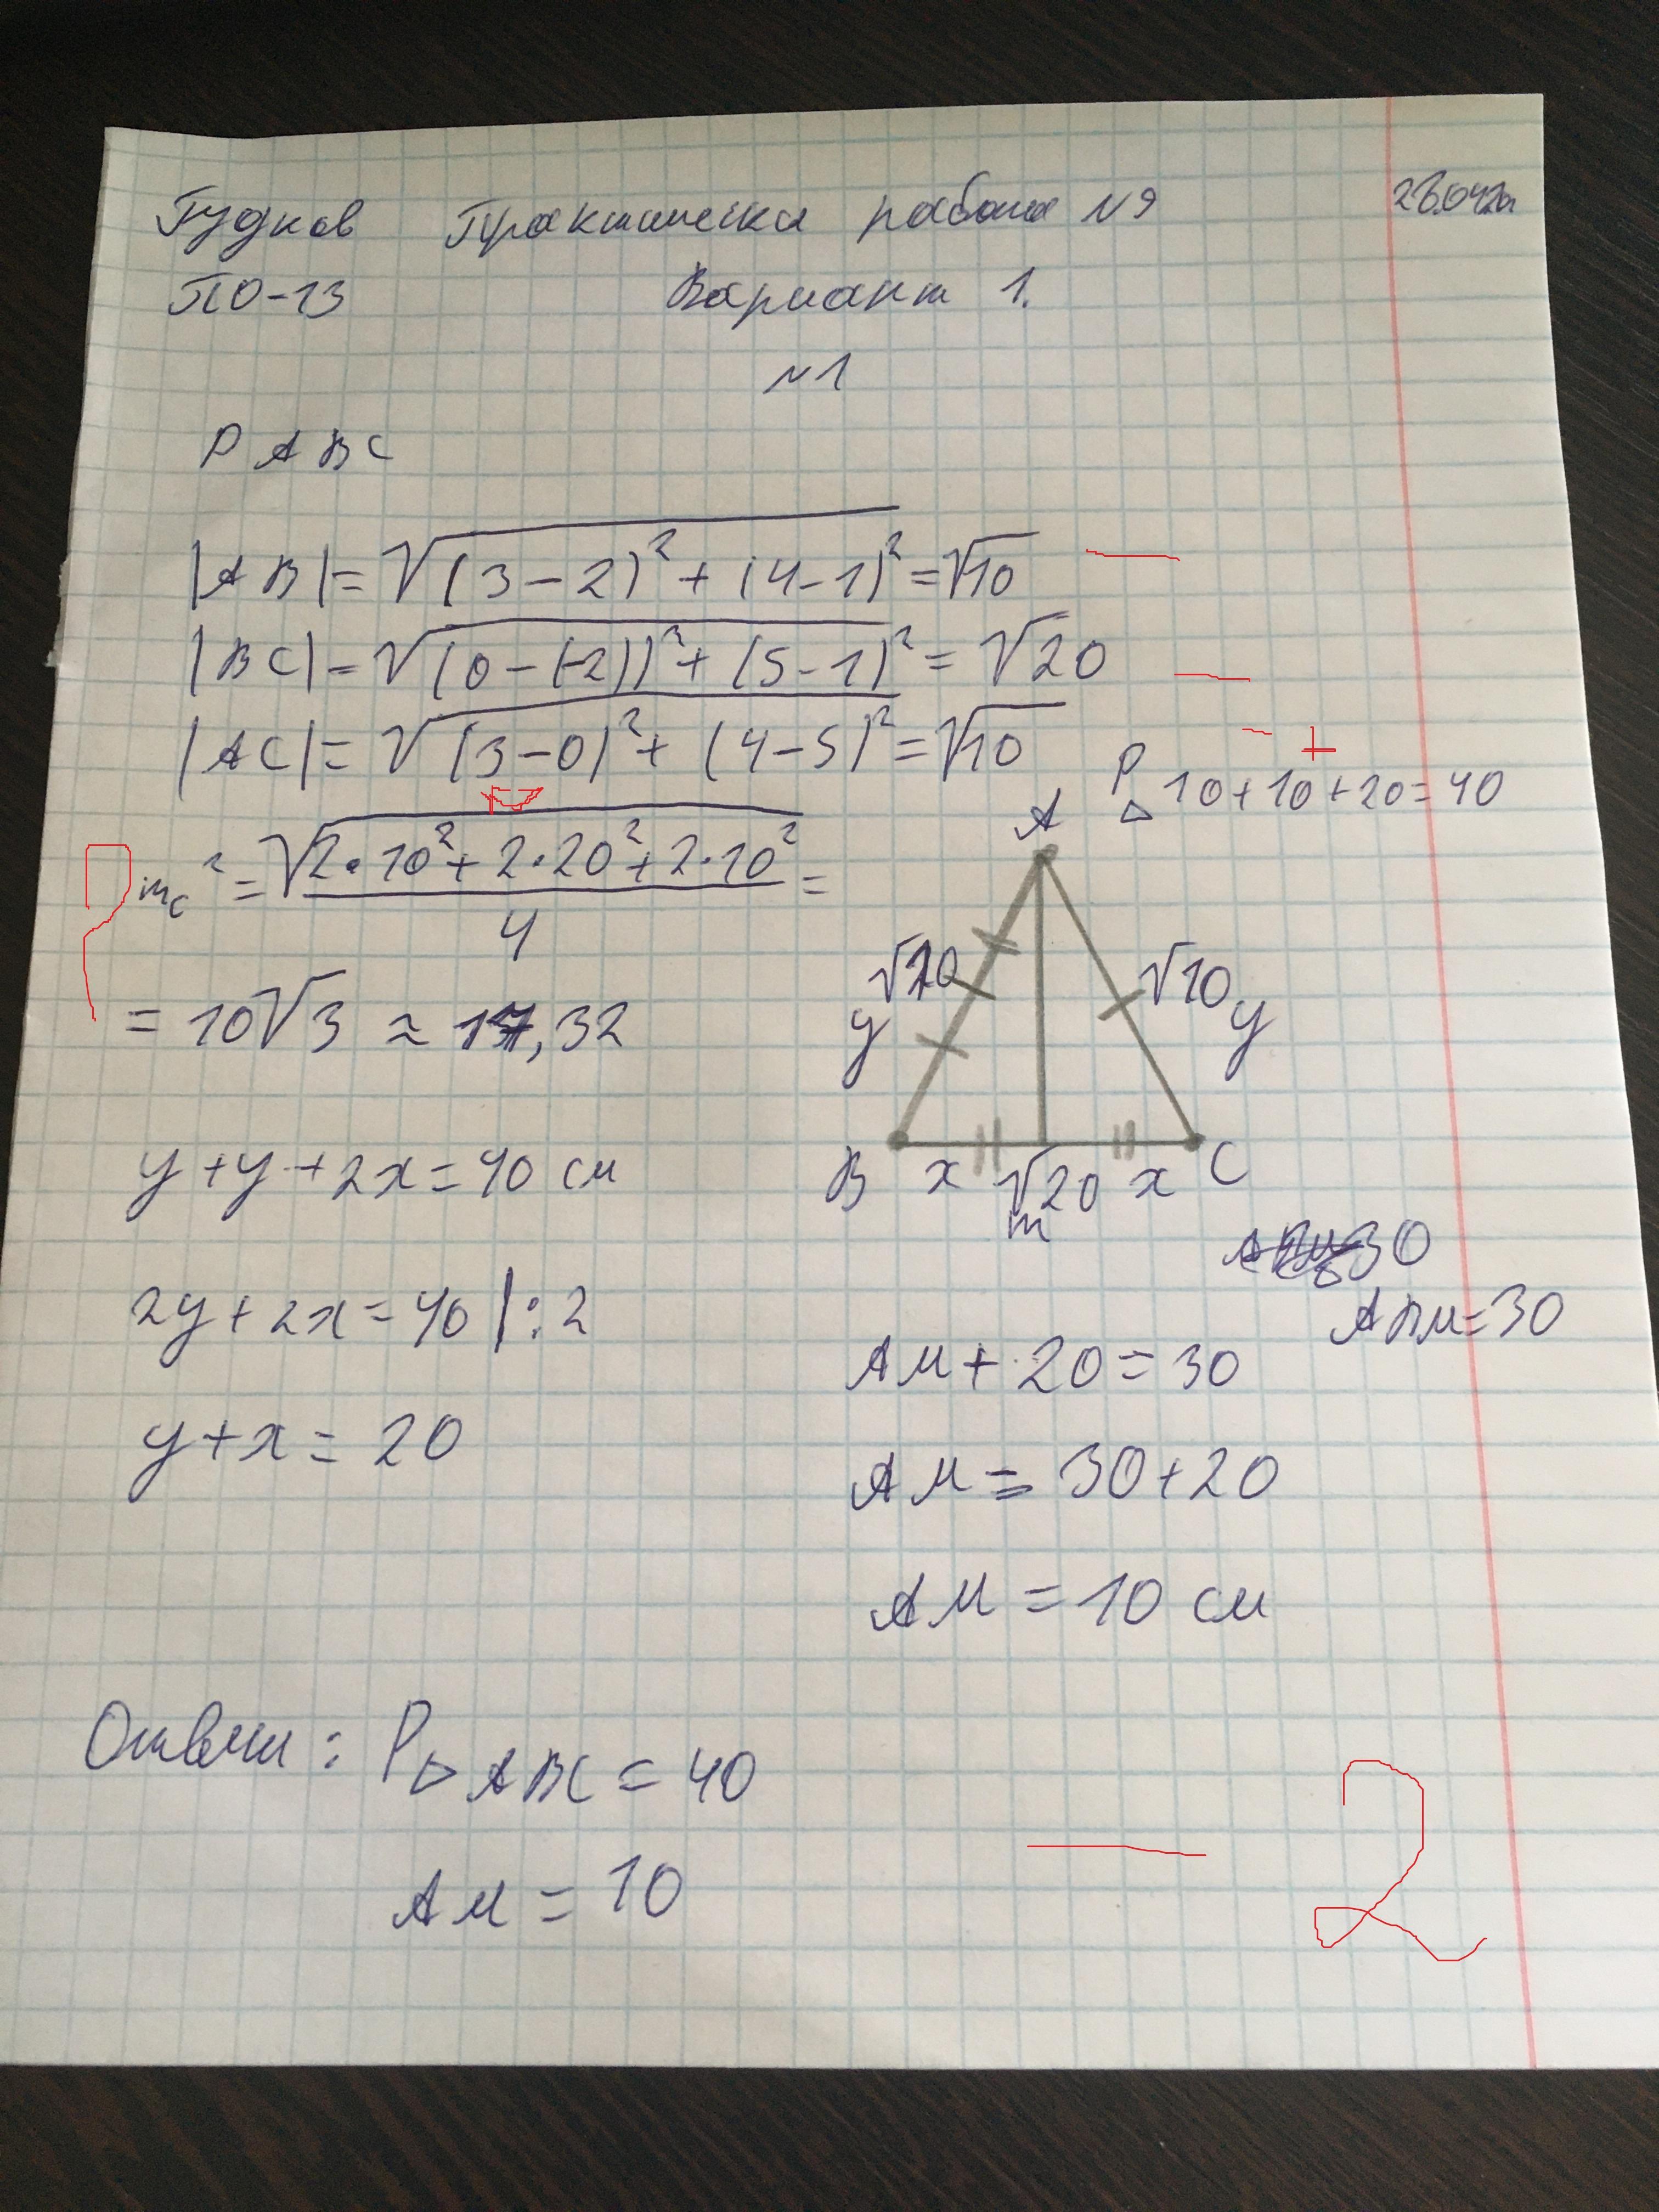 Гудков Практическа работа №9
ПО-13 Вариант 1.
№1
P ABC
|AB|= √(3-2)²+(4-1)² = √10
|BC|= √(0-(-2))²+(5-1)² = √20
|AC|= √(3-0)²+(4-5)² = √10
P△ 10+10+20=40
m_c² = √2·10²+2·20²+2·10² / 4 =
= 10√3 ≈ 17,32
A
y
√10 y
B x √20 x C
m
y+y+2x=40 см
30
ABM=30
2y+2x=40 |:2
AM+20=30
y+x=20
AM=30+20
AM=10 см
Ответ: P△ABC=40
AM=10
2